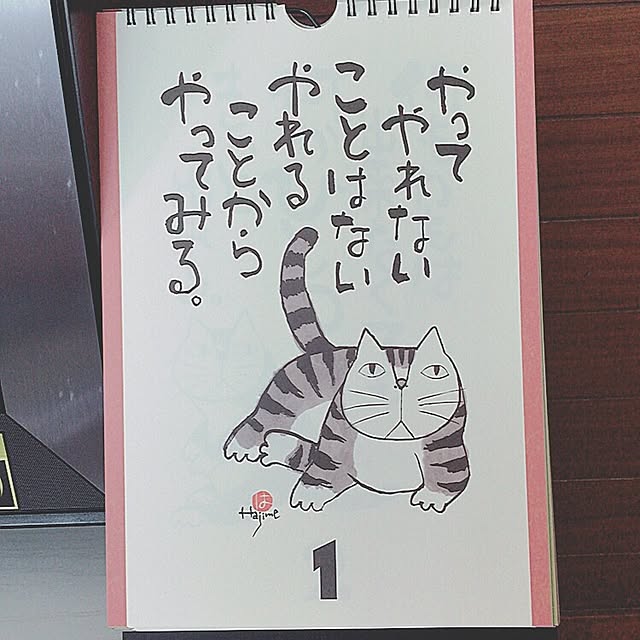 やって
やれない
ことはない
やれる
ことから
やってみる。
は
Hajime
1